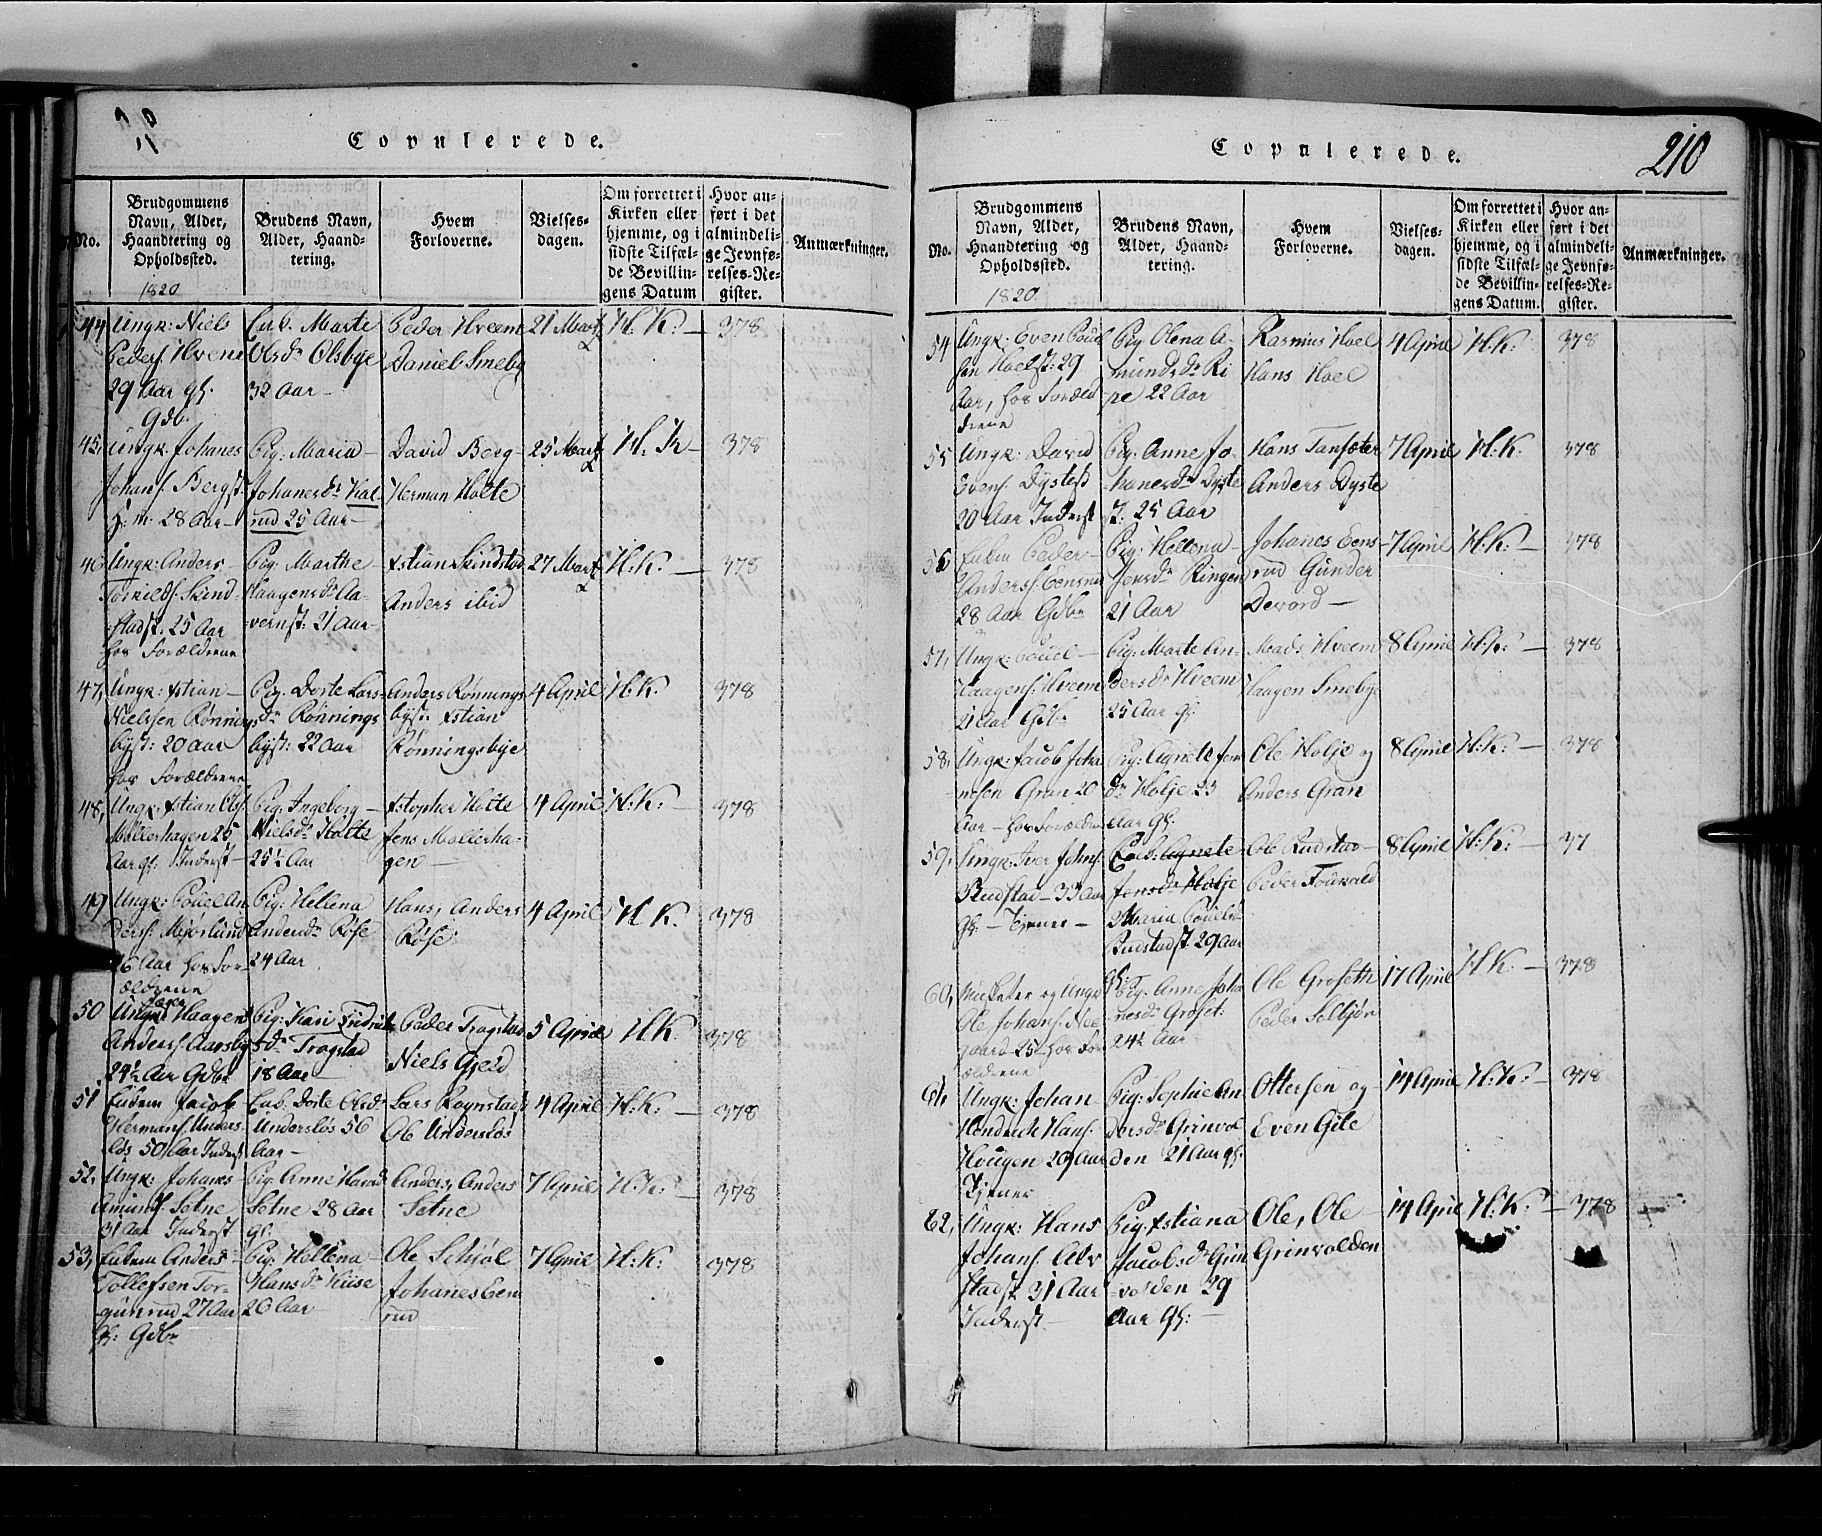 Copulerede.
No.
Brudgommens
Navn, Alder,
Haandtering og
Opholdssted.
1820
Brudens Navn,
Alder, Haand-
tering.
Hvem
Forloverne.
Vielses-
dagen.
Om forrettet i
Kirken eller
hjemme, og i
sidste Tilfæl-
de Bevillin-
gens Datum
Hvor an-
ført i det
almindeli-
ge Jevnfø-
relses-Re-
gister.
Anmærkninger.
44
Ungk: Niels
Peders. Hveem
29 Aar gl.
Gdb.
Enk. Marte
Olsdr Olsbye
32 Aar
Peder Hveem
Daniel Smeby
21 Marts
H. K:
378
45,
Ungk. Johanes
Johans. Bergst.
28 Aar
Pig: Maria
Johanesdr Kal-
rud 25 Aar
David Berg
Herman Holte
25 Marts
H. K
378
46
Ungk: Anders
Skind-
stadst. 25 Aar
hos Forældrene
Pig: Marthe
Haagensdr Aa-
vernst: 21 Aar
Xstian Skindstad
Anders ibid
27 Marts
H: K:
378
47,
Ungk: Xstian
Nielssen Rønnings
byst: 20 Aar
hos Forældrene
Pig: Dorte Lars-
dr Rønnings
byst: 22 Aar
Anders Rønnings
byst: Xstian
Rønningsbye
4 April
H: K.
378
48,
Ungk: Xstian Ols.
Møllerhagen 25
Aar gl: Inderst
Pig: Ingeborg
Nielsdr Holte
25½ Aar
Xstopher Holte
Jens Møllerha-
gen
4 April
H: K:
378
49
Ungk: Pouel An
ders. Mjørlund
26 Aar hos For-
ældrene
Pig: Hellena
Andersdr Røse
24 Aar
Hans, Anders
Røse
4 April
H K.
378
50
Haagen
Anders. Aarsby
24½ Aar Gdbr
Pig: Kari Fridrich
sdr Trogstad
18 Aar
Peder Trogstad
Niels Gjeld
5 April
H K.
378
51
Enkem Jacob
Hermans. Unders-
løs 50 Aar Inderst
Enk. Dorte Olsdr
Undersløs 56
Aar
Lars Rognstad
Ole Undersløs
4 April
H: K:
378
52,
Ungk: Johanes
Amunds. Setne
31 Aar Inderst
Pig: Anne
Setne 28 Aar
gl:
Anders, Anders
Setne
7 April
H: K:
378
53,
Enkem Anders
Tollefsen Tor-
gunrud 27 Aar
gl: Gdbr
Pig: Hellena
Hansdr Huse
26 Aar
Ole Schjøl
Johanes Een
rud
7 April
H: K:
378
Copulerede.
210
No.
Brudgommens
Navn, Alder,
Haandtering og
Opholdssted.
1820.
Brudens Navn,
Alder, Haand-
tering.
Hvem
Forloverne.
Vielses-
dagen.
Om forrettet i
Kirken eller
hjemme, og i
sidste Tilfæl-
de Bevillin-
gens Datum.
Hvor an-
ført i det
almindeli-
ge Jevnfø-
relses-Re-
gister.
Anmærkninger.
54
Ungk: Even Pouel
sen Hoelst: 29
Aar, hos Foræld
drene
Pig Olena A-
mundsdr Ri
pe 22 Aar
Rasmus Hoel
Hans Hoel
4 April
H. K:
378
55
Ungk: David
Evens. Dystest
20 Aar Inderst
Pig: Anne Jo-
hanesdr Dyste
st: 25 Aar
Hans
Anders Dyste
7 April
H: K.
378
56
Enkem Peder
Anders. Eensrud
28 Aar Gdbr
Pig: Hellena
Jensdr Ringen
21 Aar
Johanes Eens-
rud Gunder
7 April
H: K:
378
57,
Ungk: Pouel
Haagens. Hveem
21 Aar Gdbr
Pig: Marte An-
dersdr Hveem
25 Aar gl:
Mads Hveem
Haagen Smebye
8 April
H: K:
378
58,
Ungk: Jacob Joha
nesen Gran 20
Aar - hos Forældre
Pig: Agnete Jens
dr Holje 23
Aar gl:
Ole Holje og
Anders Gran
8 April
H: K:
378
59,
Ungk: Iver Johns.
Rudstad 33 Aar
gl: - Tjener
Agnete
Jensdr Holje
Maria Pouels
Rudstadst: 29 Aar
gl:
Ole Rudstad
Peder
8 April
H: K:
37
60,
Musketer og Ungk
Ole Johans. Nee
gaard 25 hos For
ældrene
Pig: Anne Joha
nesdr Groset:
24½ Aar
Ole Groseth
Peder Seltjør
17 April
H K.
378
61,
Ungk: Johan
Hendrich Hans.
Hougen 29 Aar
Tjener
Pig: Sophie An
dersdr Grinvol
den 21 Aar gl.
Ottersen og
Even Gile
14 April
H: K:
378
62,
Ungk: Hans
Johans. Alv
stadst 31 Aar
Inderst
Pig: Xstiana
Jacobsdr Grin
volden 29
Aar gl:
Ole, Ole
Grinvolden
14 April
H: K:
378